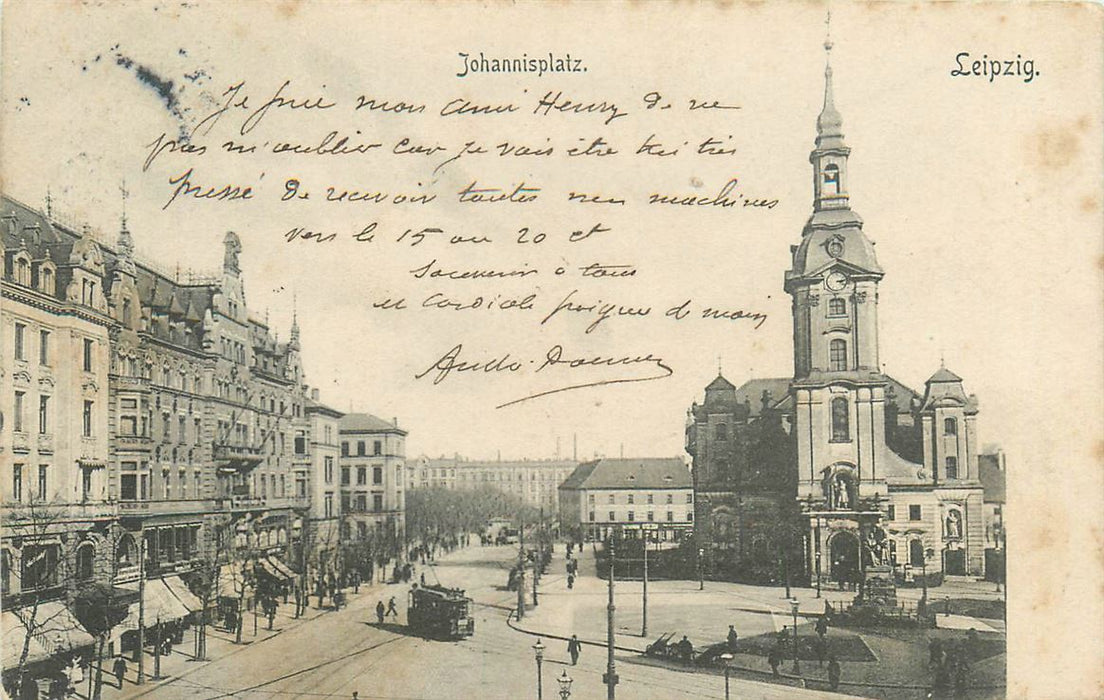 Johannisplatz.
Leipzig.
Je prie mon ami Henry de ne
pas m'oublier car je vais être très
pressé de recevoir toutes mes machines
vers le 15 au 20 et
Souvenir à tous
et cordiale poignée de main